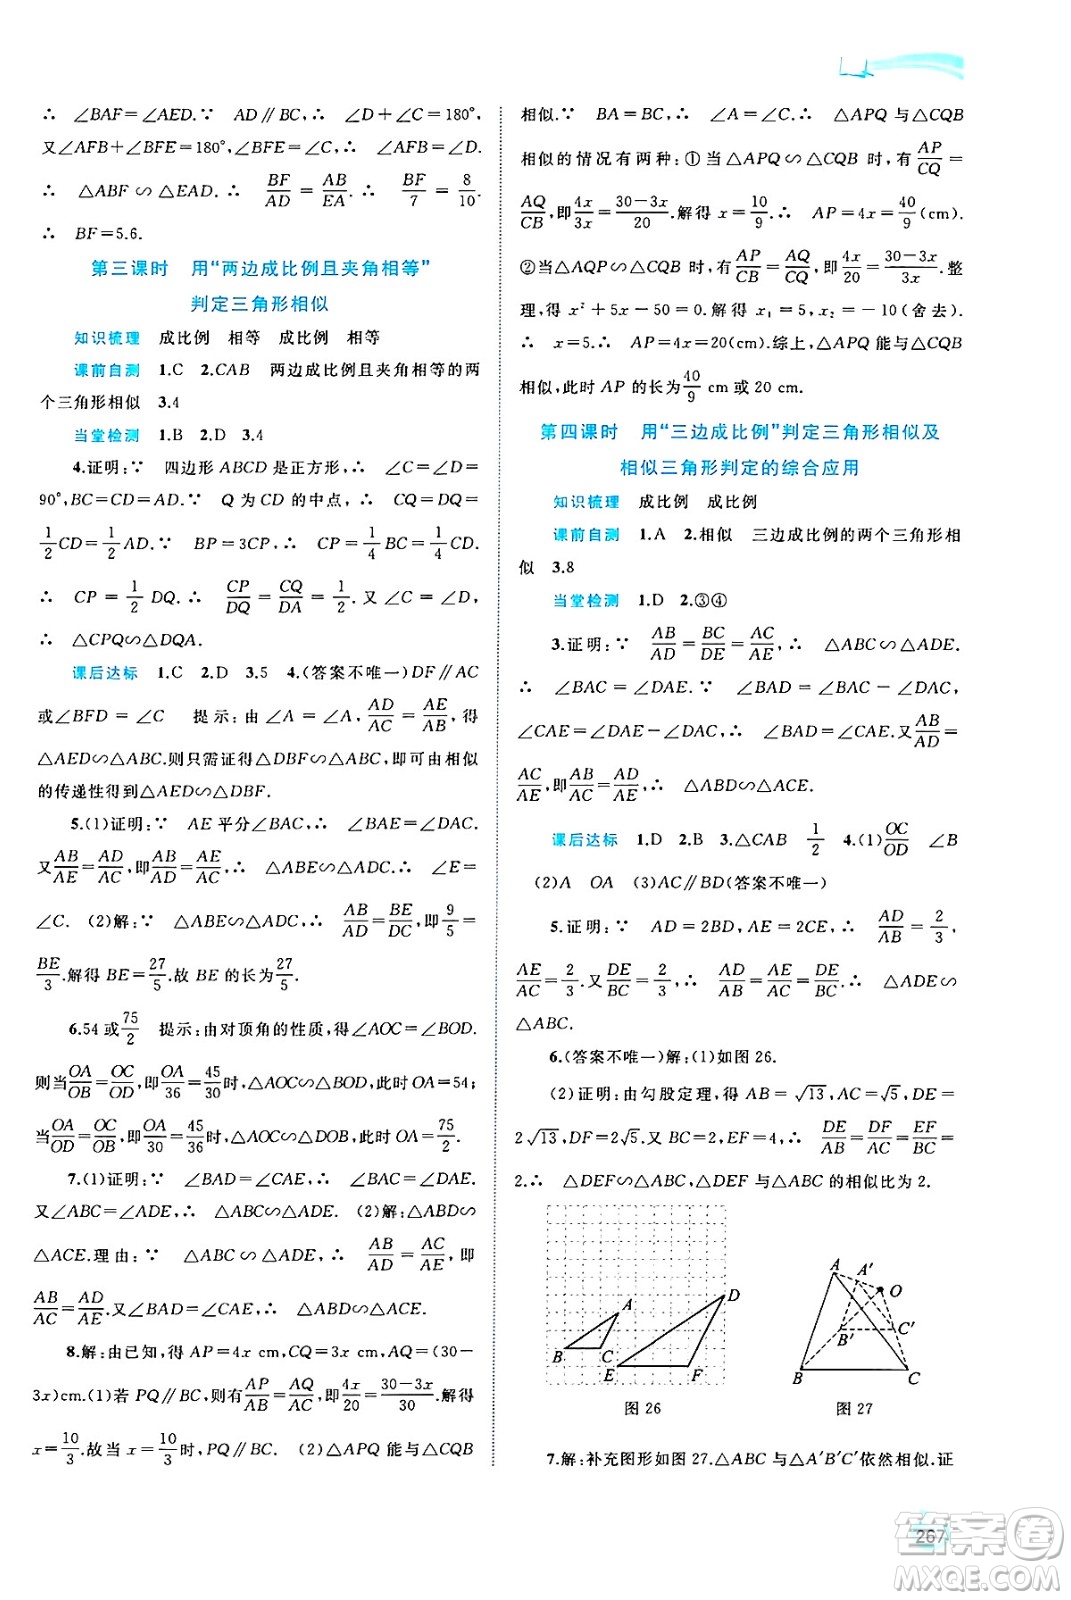 ∴ ∠BAF=∠AED.∵ AD∥BC,∴ ∠D+∠C=180°,
又∠AFB+∠BFE=180°,∠BFE=∠C,∴ ∠AFB=∠D.
∴ △ABF∽△EAD.∴ BF/AD=AB/EA.∴ BF/7=8/10.
∴ BF=5.6.
第三课时 用“两边成比例且夹角相等”
判定三角形相似
知识梳理 成比例 相等 成比例 相等
课前自测 1.C 2.CAB 两边成比例且夹角相等的两
个三角形相似 3.4
当堂检测 1.B 2.D 3.4
4.证明:∵ 四边形ABCD是正方形,∴ ∠C=∠D=
90°,BC=CD=AD.∵ Q为CD的中点,∴ CQ=DQ=
1/2CD=1/2AD.∵ BP=3CP,∴ CP=1/4BC=1/4CD.
∴ CP=1/2DQ.∴ CP/DQ=CQ/DA=1/2.又∠C=∠D,
∴ △CPQ∽△DQA.
课后达标 1.C 2.D 3.5 4.(答案不唯一)DF∥AC
或∠BFD=∠C 提示:由∠A=∠A,AD/AC=AE/AB,得
△AED∽△ABC.则只需证得△DBF∽△ABC,即可由相似
的传递性得到△AED∽△DBF.
5.(1)证明:∵ AE平分∠BAC,∴ ∠BAE=∠DAC.
又AB/AE=AD/AC,即AB/AD=AE/AC,∴ △ABE∽△ADC.∴ ∠E=
∠C. (2)解:∵ △ABE∽△ADC,∴ AB/AD=BE/DC,即9/5=
BE/3.解得BE=27/5.故BE的长为27/5.
6.54或75/2 提示:由对顶角的性质,得∠AOC=∠BOD.
则当OA/OB=OC/OD,即OA/36=45/30时,△AOC∽△BOD,此时OA=54;
当OA/OD=OC/OB,即OA/30=45/36时,△AOC∽△BOD,此时OA=75/2.
7.(1)证明:∵ ∠BAD=∠CAE,∴ ∠BAC=∠DAE.
又∠ABC=∠ADE,∴ △ABC∽△ADE. (2)解:△ABD∽
△ACE.理由:∵ △ABC∽△ADE,∴ AB/AD=AC/AE,即
AB/AC=AD/AE.又∠BAD=∠CAE,∴ △ABD∽△ACE.
8.解:由已知,得AP=4x cm,CQ=3x cm,AQ=(30-
3x)cm.(1)若PQ∥BC,则有AP/AB=AQ/AC,即4x/20=30-3x/30.解得
x=10/3.故当x=10/3时,PQ∥BC. (2)△APQ能与△CQB
相似.∵ BA=BC,∴ ∠A=∠C.∴ △APQ与△CQB
相似的情况有两种:①当△APQ∽△CQB时,有AP/CQ=
AQ/CB,即4x/3x=30-3x/20.解得x=10/9.∴ AP=4x=40/9(cm).
②当△AQP∽△CQB时,有AP/CB=AQ/CQ,即4x/20=30-3x/3x.整
理,得x²+5x-50=0.解得x₁=5,x₂=-10(舍去).
∴ x=5.∴ AP=4x=20(cm).综上,△APQ能与△CQB
相似,此时AP的长为40/9 cm或20 cm.
第四课时 用“三边成比例”判定三角形相似及
相似三角形判定的综合应用
知识梳理 成比例 成比例
课前自测 1.A 2.相似 三边成比例的两个三角形相
似 3.8
当堂检测 1.D 2.③④
3.证明:∵ AB/AD=BC/DE=AC/AE,∴ △ABC∽△ADE.
∴ ∠BAC=∠DAE.∵ ∠BAD=∠BAC-∠CAD,
∠CAE=∠DAE-∠CAD,∴ ∠BAD=∠CAE.又AB/AD=
AC/AE,即AB/AC=AD/AE,∴ △ABD∽△ACE.
课后达标 1.D 2.B 3.△CAB 1/2 4.(1)OC/OD ∠B
(2)A OA (3)AC∥BD(答案不唯一)
5.证明:∵ AD=2BD,AE=2CE,∴ AD/AB=2/3,
AE/AC=2/3.又DE/BC=2/3,∴ AD/AB=AE/AC=DE/BC.∴ △ADE∽
△ABC.
6.(答案不唯一)解:(1)如图26.
(2)证明:由勾股定理,得AB=√13,AC=√5,DE=
2√13,DF=2√5.又BC=2,EF=4,∴ DE/AB=DF/AC=EF/BC=
2.∴ △DEF∽△ABC,△DEF与△ABC的相似比为2.
A B C D E F
图26
A A′ O B′ C′ B C
图27
7.解:补充图形如图27.△ABC与△A′B′C′依然相似.证
267
答案卷
MXQE.COM